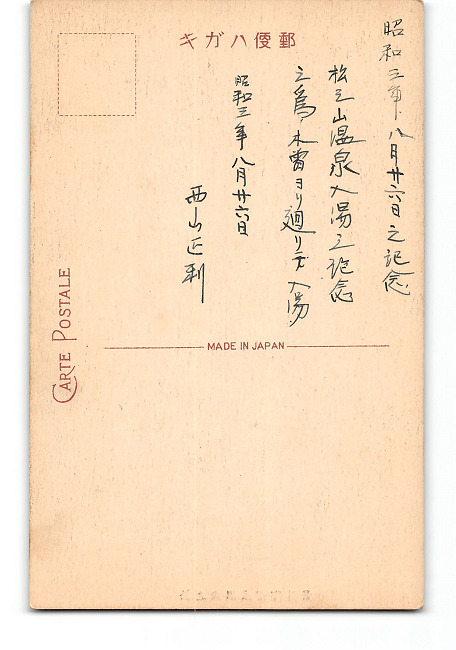 キガハ便郵
昭和三年八月廿六日之記念
松之山温泉入湯之記念
之為木曽ヨリ廻リテ入湯
昭和三年八月廿六日
西山正利
CARTE POSTALE
MADE IN JAPAN